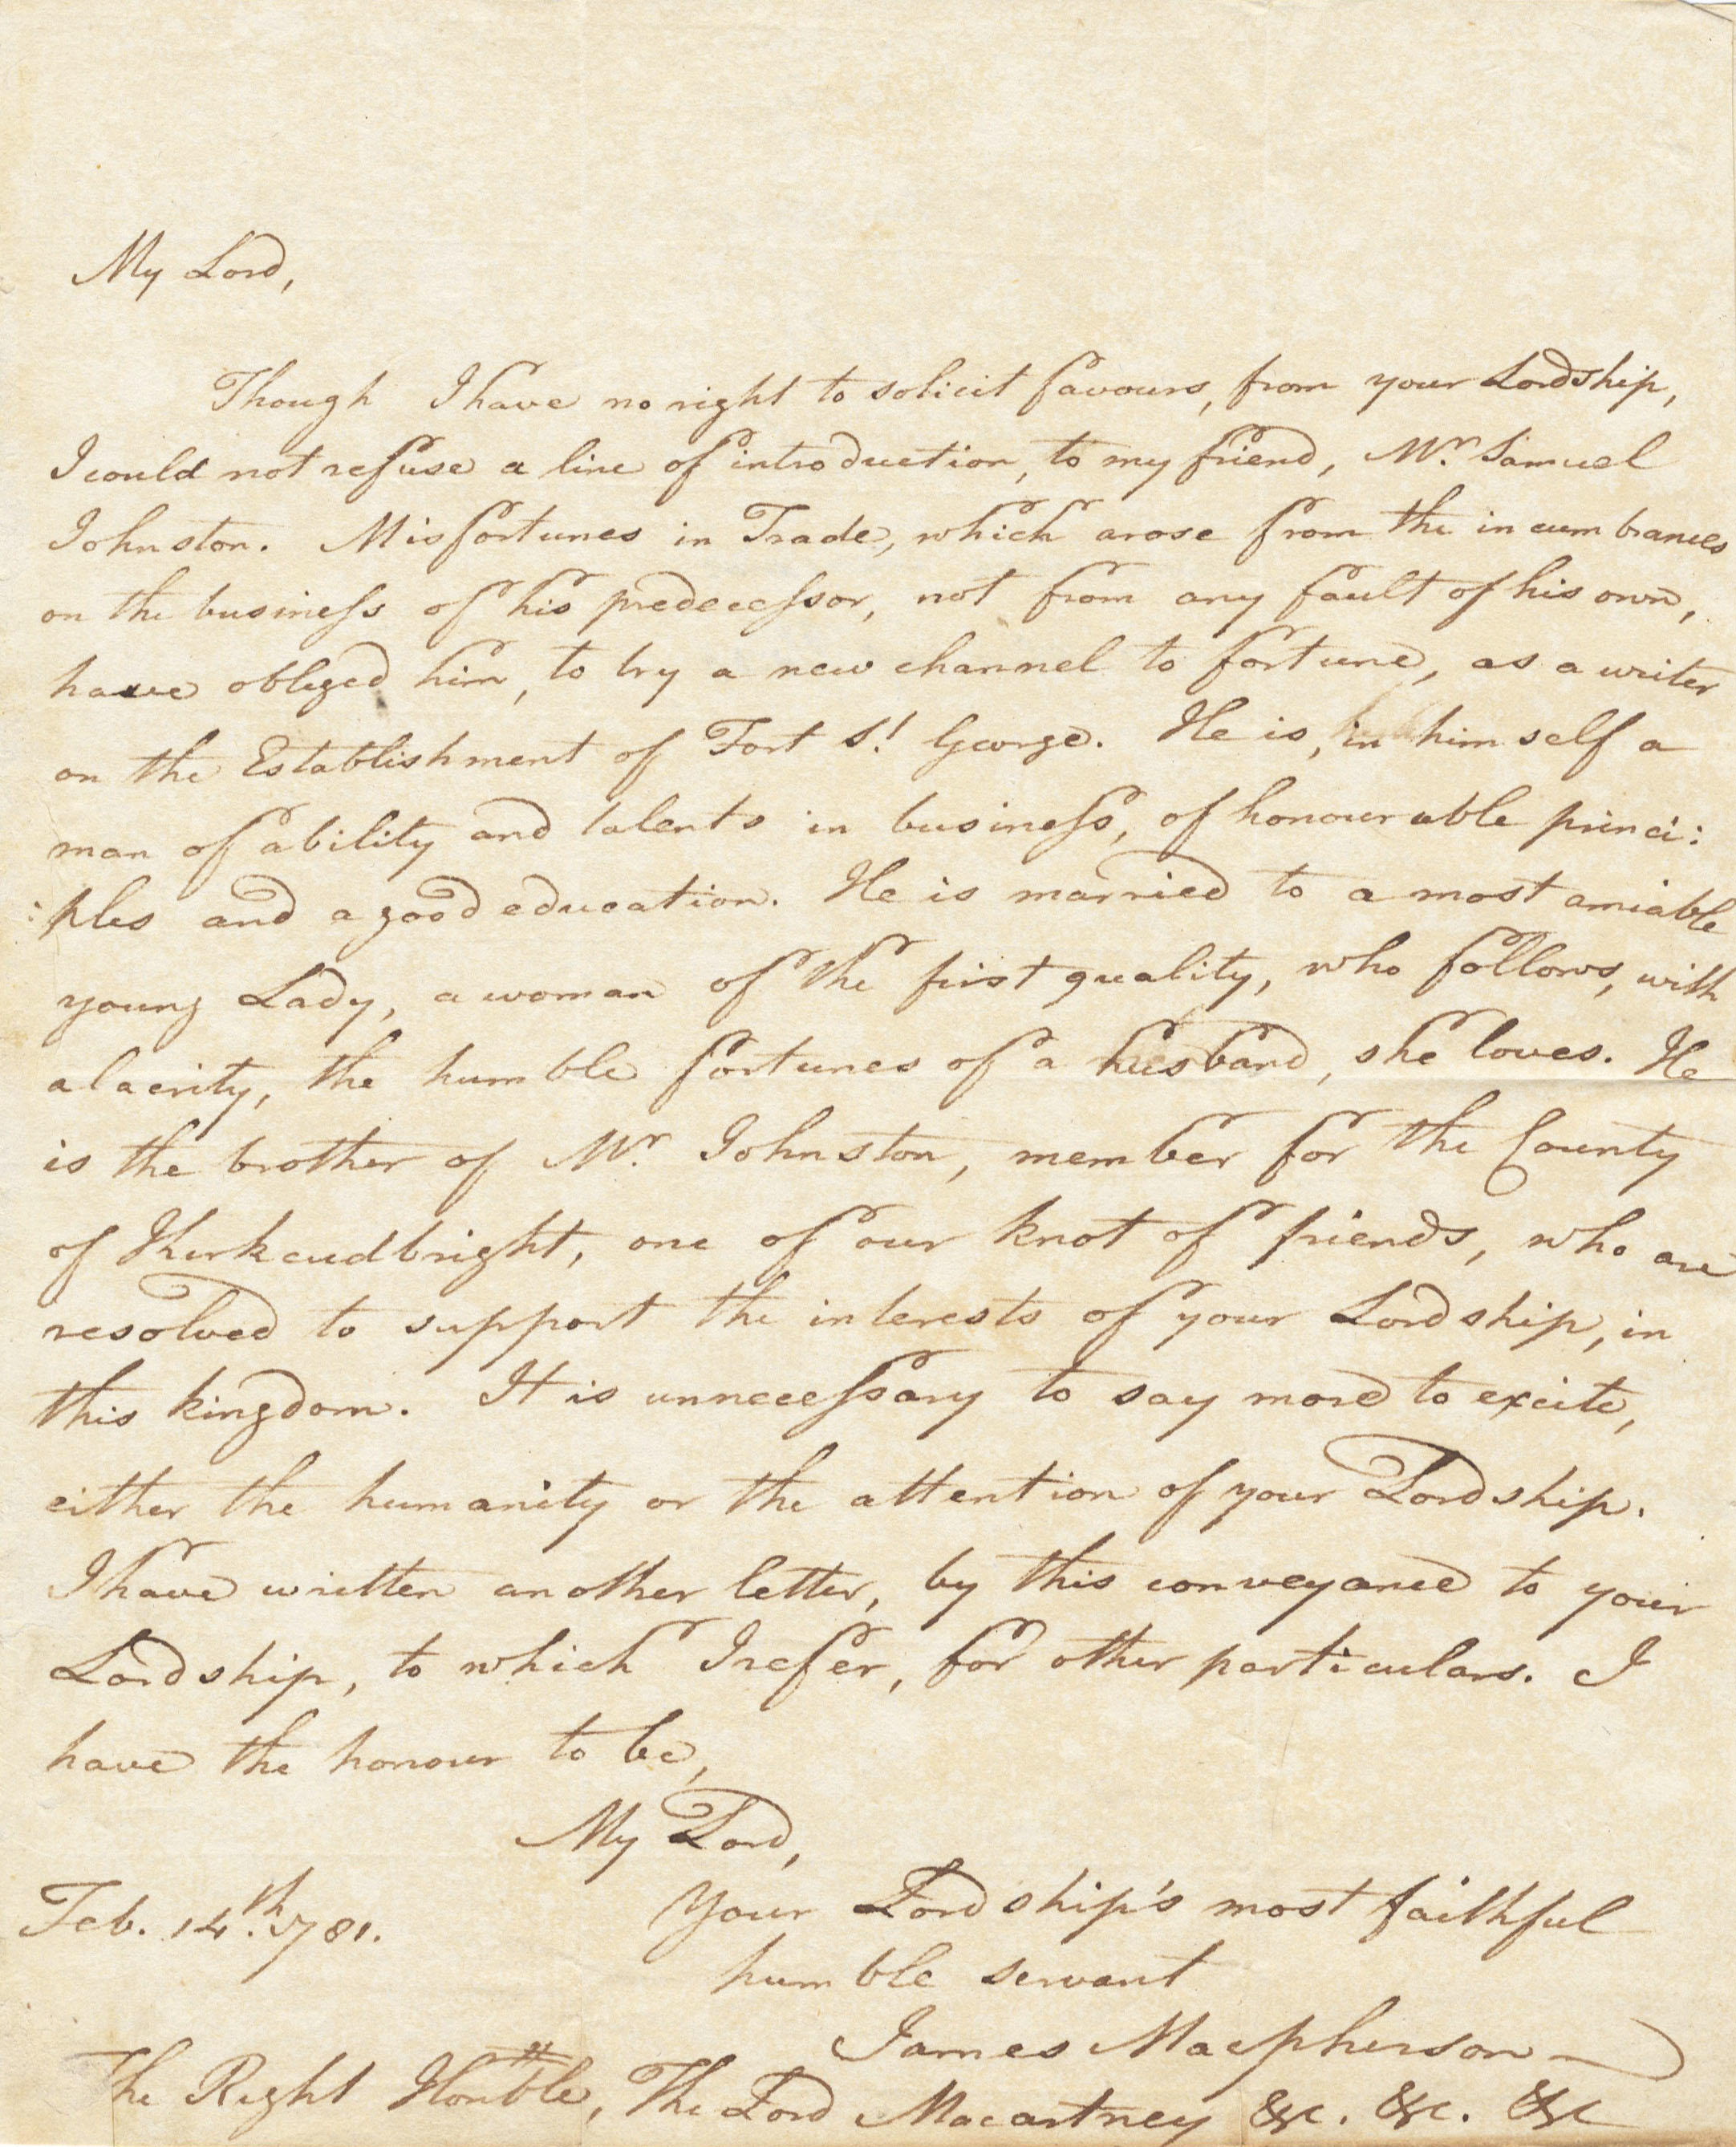 My Lord,
Though I have no right to solicit favours, from your Lordship,
I could not refuse a line of introduction, to my friend, Mr. Samuel
Johnston. Misfortunes in Trade, which arose from the incumbrances
on the business of his predecessor, not from any fault of his own,
have obliged him, to try a new channel to fortune, as a writer
on the Establishment of Fort St. George. He is, in himself a
man of ability and talents in business, of honourable princi:
:ples and a good education. He is married to a most amiable
young Lady, a woman of the first quality, who follows, with
alacrity, the humble fortunes of a husband, she loves. He
is the brother of Mr. Johnston, member for the County
of Kirkcudbright, one of our knot of friends, who are
resolved to support the interests of your Lordship, in
this kingdom. It is unnecessary to say more to excite,
either the humanity or the attention of your Lordship.
I have written another letter, by this conveyance to your
Lordship, to which I refer, for other particulars. I
have the honour to be,
My Lord,
Your Lordship's most faithful
Feb. 14th. 1781.
humble servant
James Macpherson
The Right Honble, The Lord Macartney &c. &c. &c